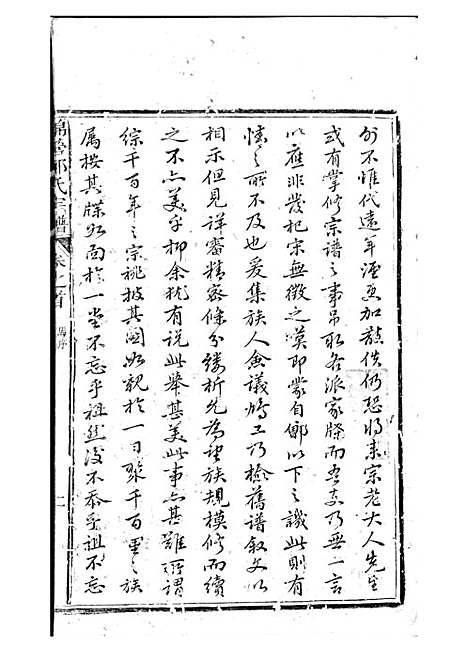 外不惟代遠年湮更加散佚仍恐將來宗老大人先生
或有掌修宗譜之事吊取各派家牒而吾宗乃無一言
以應非發杞宋無徵之嘆即蒙自鄶以下之譏此則有
情之所不及也爰集族人僉議鳩工乃檢舊譜敘文以
相示但見詳審精密條分縷析先為望族規模修而續
之不亦美乎抑余猶有說此舉甚美此事亦甚難所謂
綜千百年之宗祧披其圖如親於一日聚千百里之族
屬按其牒如面於一堂不忘乎祖然後不忝乎祖不忘
氏宗譜 卷之首 序 二